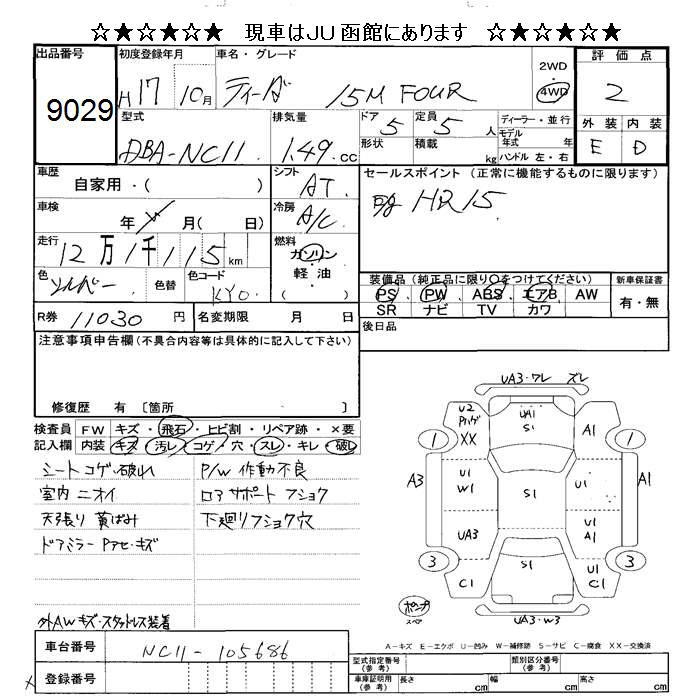 ☆★☆★☆★☆ 現車はJU函館にあります ☆★☆★☆★☆
出品番号 初度登録年月 車名・グレード 2WD 4WD 評価点
9029 H17 10月 ティーダ 15M FOUR 2
型式 排気量 ドア 定員 ディーラー・並行 外装 内装
DBA-NC11 1.49 cc 5 5 人 モデル年式 年 E D
形状 積載 kg ハンドル 左・右
車歴 自家用・( ) シフト AT セールスポイント (正常に機能するものに限ります)
車検 年 月( 日) 冷房 A/C HR15
走行 12万1千115km 燃料 ガソリン・軽油・( )
色 シルバー 色替 色コード KY0
装備品 (純正品に限り○をつけてください) 新車保証書
PS、PW、ABS、エアB、AW 有・無
SR ナビ TV カワ
R券 11030 円 名変期限 月 日 後日品
注意事項申告欄(不具合内容等は具体的に記入して下さい)
修復歴 有 〔箇所 〕
検査員記入欄 FW キズ・飛石・ヒビ割・リペア跡・×要
内装 キズ 汚レ・コゲ・穴・スレ・キレ・破レ
シートコゲ・破れ P/W 作動不良
室内ニオイ ロアサポートフショク
天張り黄ばみ 下廻りフショク穴
ドアミラー Pアセ・キズ
外AWキズ・スタットレス装着
車台番号 NC11-105686
登録番号
UA3・ワレ ズレ
U2 XX UA1 S1 A1
1 1
A3 U1 W1 S1 U1 A1
UA3 U1 A1
3 C1 S1 U1 C1 3
ポンプ スペア UA3・W3
A-キズ E-エクボ U-凹み W-補修跡 S-サビ C-腐食 XX-交換済
型式指定番号(参考) 類別区分番号(参考)
車庫証明用(参考) 長さ cm 幅 cm 高さ cm